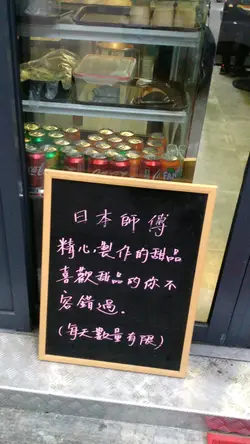 日本師傅
精心製作的甜品
喜歡甜品的你不
容錯過.
(每天數量有限)